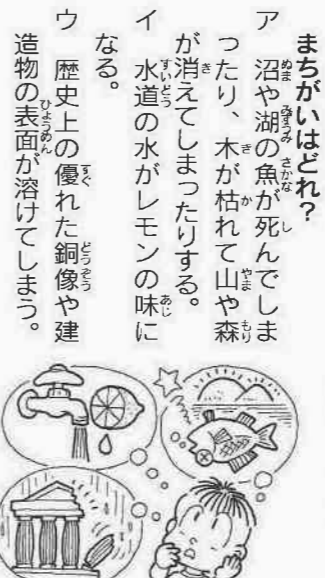 まちがいはどれ？
ア　沼や湖の魚が死んでしま
ったり、木が枯れて山や森
が消えてしまったりする。
イ　水道の水がレモンの味に
なる。
ウ　歴史上の優れた銅像や建
造物の表面が溶けてしまう。